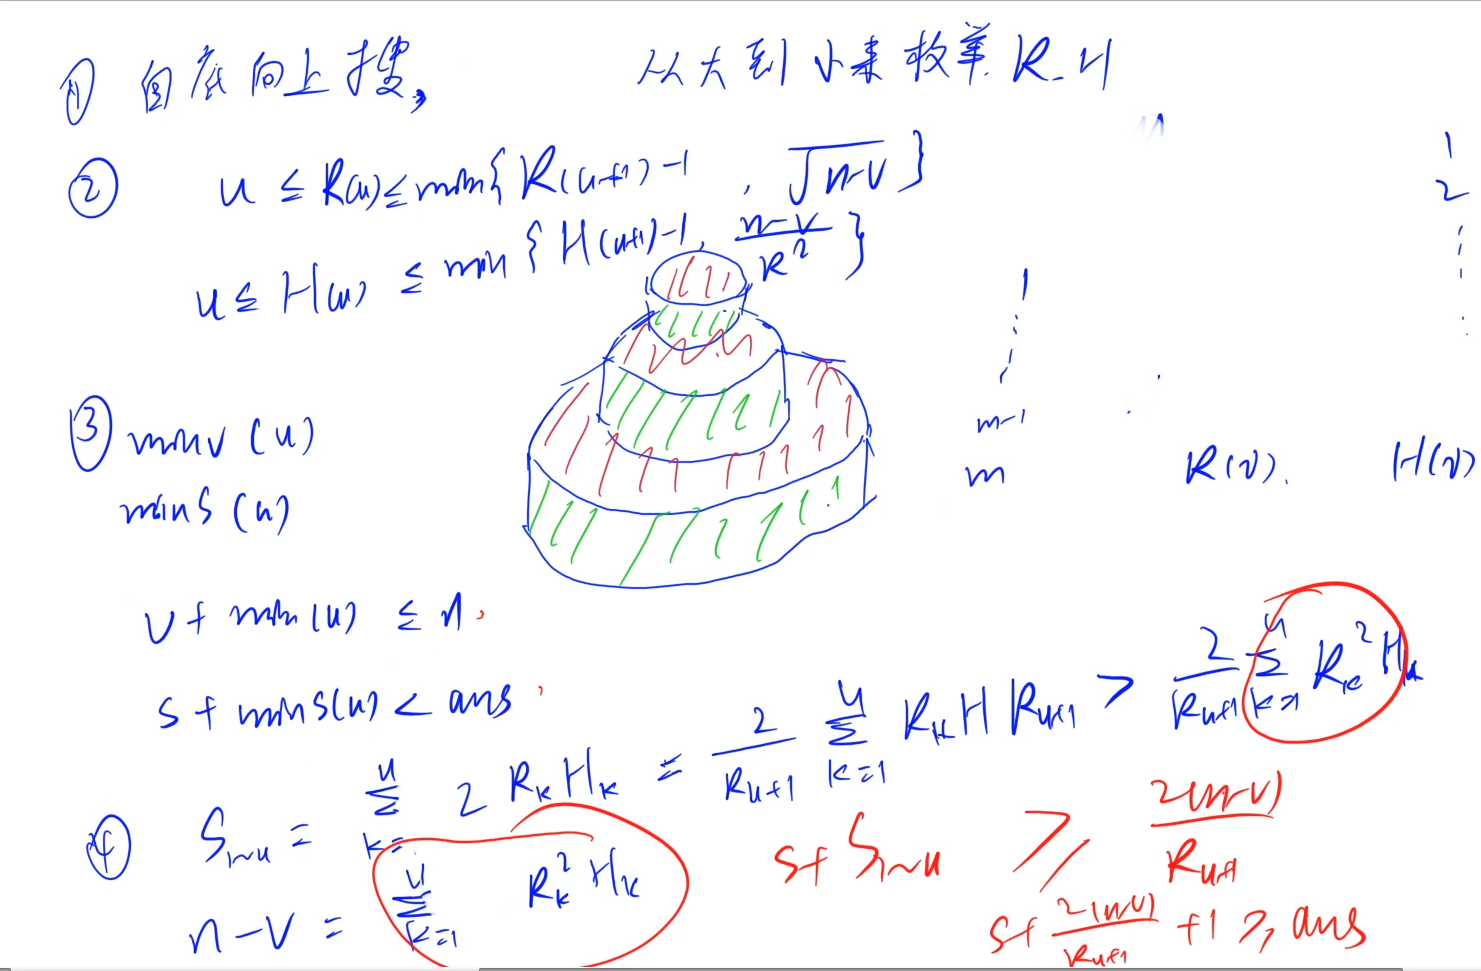 ① 自底向上搜, 从大到小来枚举 R-H
② u ≤ R(u) ≤ min{ R(u+1)-1, √n-v }
u ≤ H(u) ≤ min { H(u+1)-1, n-v/R² }
1
2
1
m-1
m R(v). H(v)
③ minv (u)
minS (u)
v + min(u) ≤ n.
S + minS(u) < ans.
④ S₁~u = Σ(k=1, u) 2 RₖHₖ = 2/Rᵤ₊₁ Σ(k=1, u) RₖH Rᵤ₊₁ > 2/Rᵤ₊₁ Σ(k=1, u) Rₖ²Hₖ
n-v = Σ(k=1, u) Rₖ²Hₖ
S+ S₁~u ≥ 2(n-v)/Rᵤ₊₁
S+ 2(n-v)/Rᵤ₊₁ +1 ≥ ans